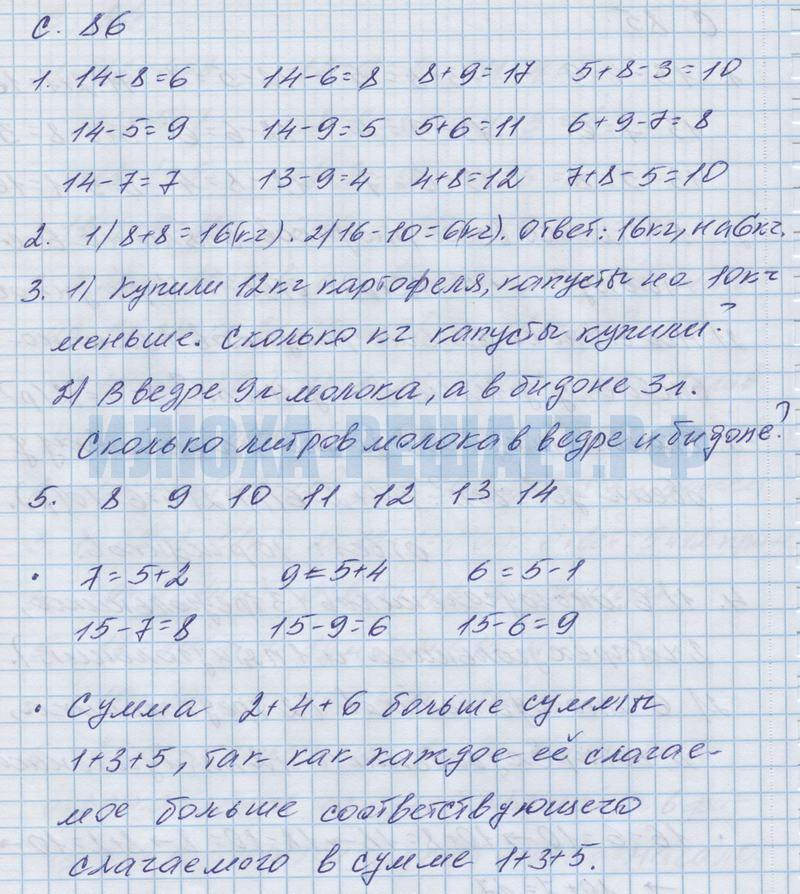 с. 86
1. 14-8=6 14-6=8 8+9=17 5+8-3=10
14-5=9 14-9=5 5+6=11 6+9-7=8
14-7=7 13-9=4 4+8=12 7+8-5=10
2. 1) 8+8=16(кг). 2) 16-10=6(кг). Ответ: 16кг, на 6кг.
3. 1) Купили 12кг картофеля, капусты на 10кг
меньше. Сколько кг капусты купили?
2) В ведре 9л молока, а в бидоне 3л.
Сколько литров молока в ведре и бидоне?
ИЛЮХА-РЕШАЕТ.РФ
5. 8 9 10 11 12 13 14
• 7=5+2 9=5+4 6=5-1
15-7=8 15-9=6 15-6=9
• Сумма 2+4+6 больше суммы
1+3+5, так как каждое её слагае-
мое больше соответствующего
слагаемого в сумме 1+3+5.